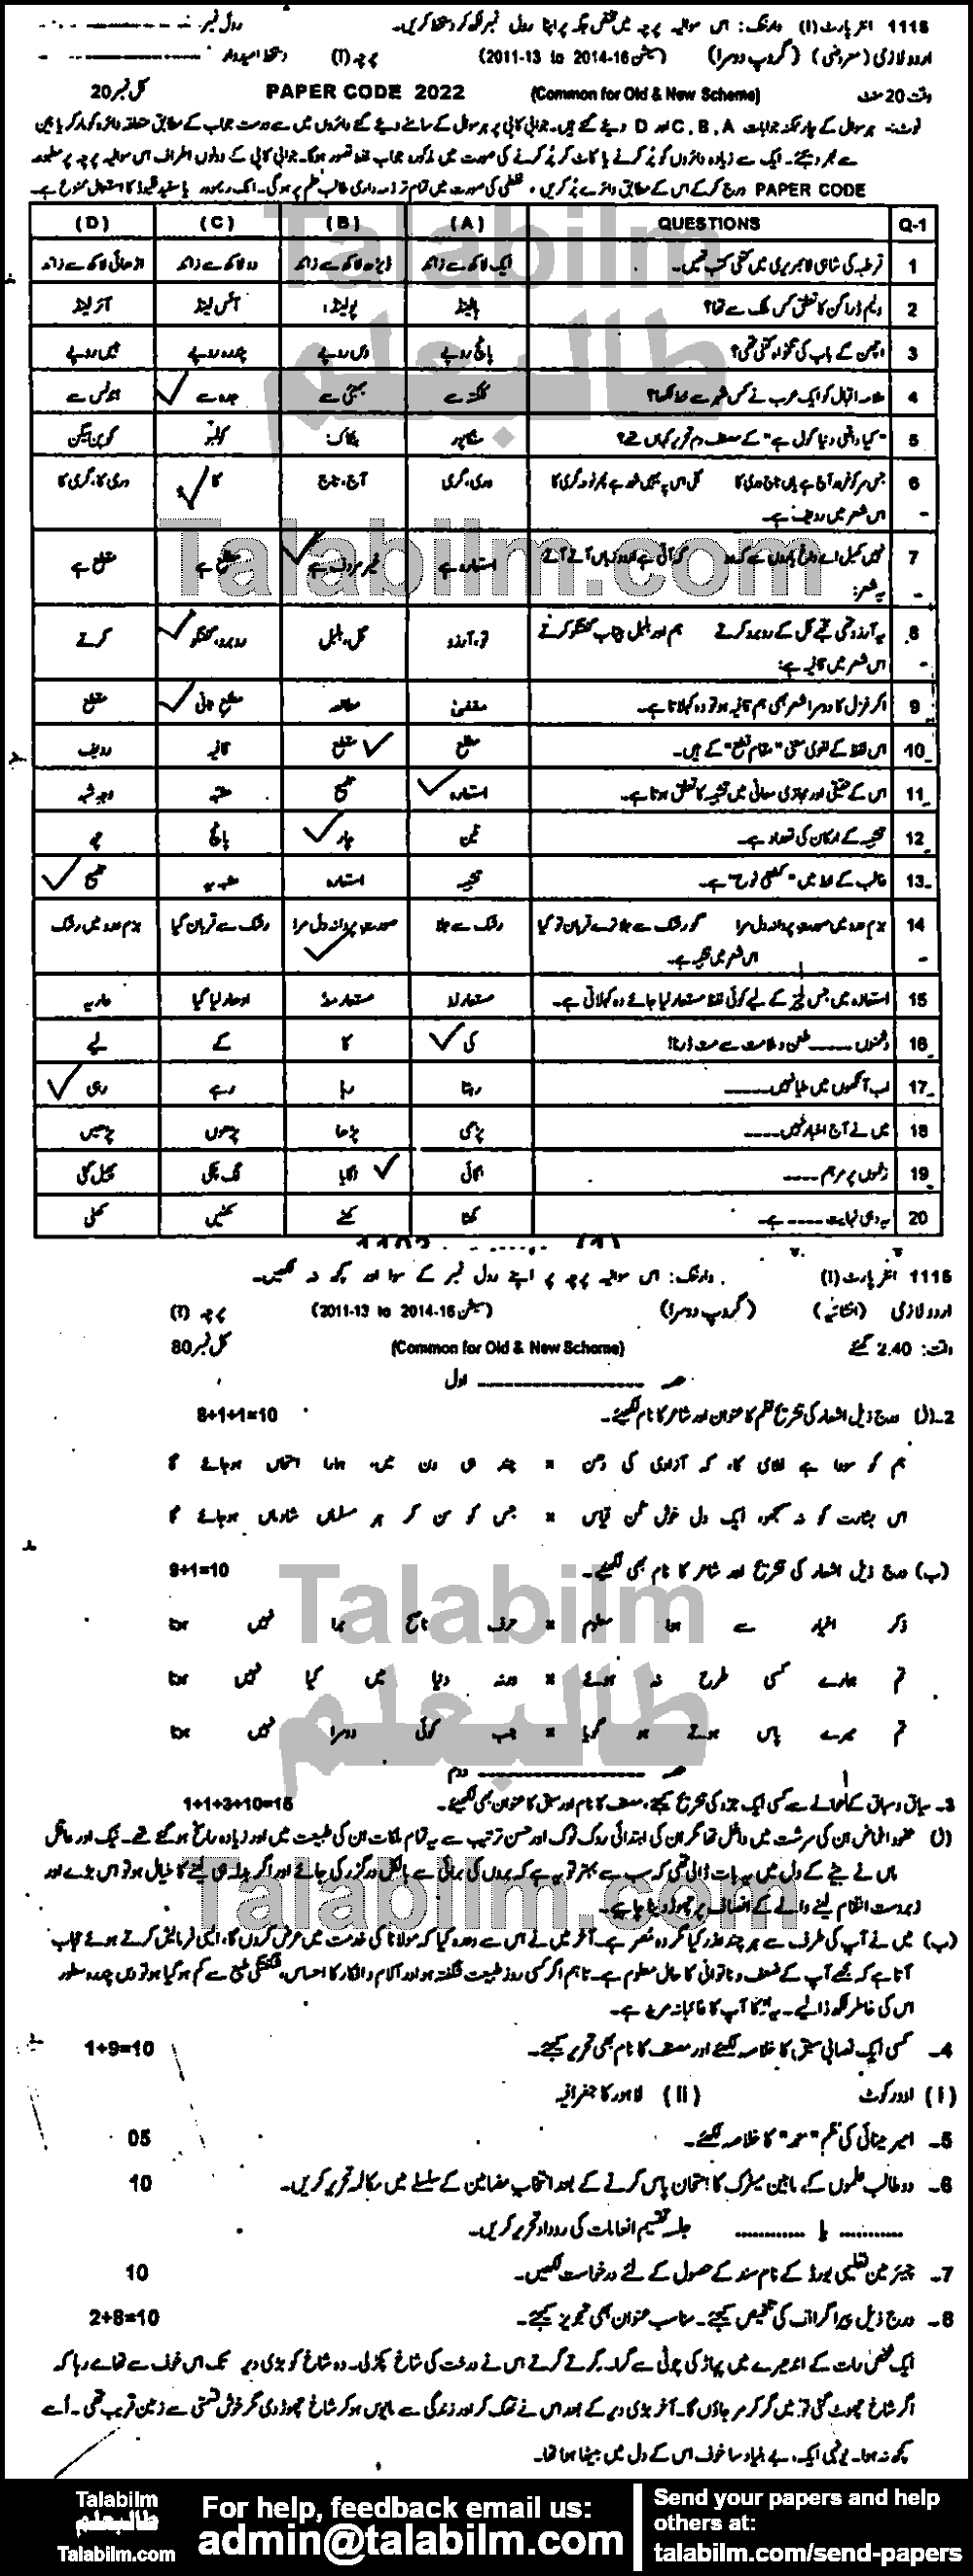 1115 انٹر پارٹ (I) وارننگ: اس سوالیہ پرچہ میں مختص جگہ پر اپنا رول نمبر لکھ کر دستخط کریں۔ رول نمبر
اردو لازمی (معروضی) (گروپ دوسرا) (سیشن 2011-13 to 2014-16) پرچہ (I) دستخط امیدوار
وقت 20 منٹ (Common for Old & New Scheme) PAPER CODE 2022 کل نمبر 20
نوٹ: ہر سوال کے چار ممکنہ جوابات A، B، C اور D دیے گئے ہیں۔ جوابی کاپی پر ہر سوال کے سامنے دیے گئے دائروں میں سے درست جواب کے مطابق متعلقہ دائرہ کو مارکر یا پین
سے بھر دیجئے۔ ایک سے زیادہ دائروں کو پُر کرنے یا کاٹ کر پُر کرنے کی صورت میں مذکورہ جواب غلط تصور ہوگا۔ جوابی کاپی کے دونوں اطراف اس سوالیہ پرچہ پر مطبوعہ
PAPER CODE درج کر کے اس کے مطابق دائرے پُر کریں، غلطی کی صورت میں تمام تر ذمہ داری طالب علم پر ہوگی۔ انک ریموور یا سفید فلیوڈ کا استعمال ممنوع ہے۔
Q-1 QUESTIONS (A) (B) (C) (D)
1 قرطبہ کی شاہی لائبریری میں کتنی کتب تھیں۔ ایک لاکھ سے زائد ڈیڑھ لاکھ سے زائد دو لاکھ سے زائد اڑھائی لاکھ سے زائد
2 ولیم ڈراکن کا تعلق کس ملک سے تھا؟ ہالینڈ پولینڈ آئس لینڈ آئر لینڈ
3 اچھن کے باپ کی تنخواہ کتنی تھی؟ پانچ روپے دس روپے پندرہ روپے بیس روپے
4 علامہ اقبال کو ایک عرب نے کس شہر سے خط لکھا؟ کلکتہ سے بمبئی سے جدہ سے
5 "کیا واقعی دنیا گول ہے" کے مصنف دمِ تحریر کہاں تھے؟ سنگاپور بنکاک کولمبو کوپن ہیگن
6 جس سر کو غرور آج ہے یاں تاج وری کا کل اس پہ یہیں شور ہے پھر نوحہ گری کا وری، گری آج، تاج کا وری کا، گری کا
اس شعر میں ردیف ہے۔
7 نہیں کھیل اے داغ یاروں سے کہہ دو کہ آتی ہے اردو زباں آتے آتے استعارہ ہے غیر مردف ہے مطلع ہے مقطع ہے
یہ شعر:
8 یہ آرزو تھی تجھے گل کے روبرو کرتے ہم اور بلبل بیتاب گفتگو کرتے تو، آرزو گل، بلبل روبرو، گفتگو کرتے
اس شعر میں قافیہ ہے:
9 اگر غزل کا دوسرا شعر بھی ہم قافیہ ہو تو وہ کہلاتا ہے۔ مقفیٰ مطلع ثانی مقطع
10 اس لفظ کے لغوی معنی "مقام قطع" کے ہیں۔ مطلع مقطع قافیہ ردیف
11 اس کے حقیقی اور مجازی معانی میں تشبیہ کا تعلق ہوتا ہے۔ استعارہ تلمیح مشبہ وجہ شبہ
12 تشبیہ کے ارکان کی تعداد ہے۔ تین چار پانچ چھ
13 غالب کے خط میں "کشتی نوح" ہے۔ تشبیہ استعارہ مشبہ بہ تلمیح
14 بزم عدو میں صورت پروانہ دل مرا گو رشک سے جلا ترے قربان تو گیا رشک سے جلا صورت پروانہ دل مرا رشک سے قربان گیا بزم عدو میں رشک
اس شعر میں تشبیہ ہے۔
15 استعارہ میں جس چیز کے لیے کوئی لفظ مستعار لیا جائے وہ کہلاتی ہے۔ مستعار لہ مستعار منہ ادھار لیا گیا عاریہ
16 دشمنوں ---- طعن و ملامت سے مت ڈرنا! کی کا کے لیے
17 اب آنکھوں میں حیا نہیں ---- رہتا رہا رہے رہی
18 میں نے آج اخبار نہیں ---- پڑھی پڑھا پڑھوں پڑھیں
19 زخموں پر مرہم ---- لگائی لگایا لگ چکی پھیل گئی
20 یہ دہی نہایت ---- ہے۔ کھٹا کھٹے کھٹیں کھٹی
1115 انٹر پارٹ (I) وارننگ: اس سوالیہ پرچہ پر اپنے رول نمبر کے سوا اور کچھ نہ لکھیں۔
اردو لازمی (انشائیہ) (گروپ دوسرا) (سیشن 2011-13 to 2014-16) پرچہ (I)
وقت: 2.40 گھنٹے (Common for Old & New Scheme) کل نمبر 80
حصہ اول
2۔ (ا) درج ذیل اشعار کی تشریح نظم کا عنوان اور شاعر کا نام لکھیئے۔ 8+1+1=10
ہم کو سودا ہے غلامی کا، کہ آزادی کی دھن × چند ہی دن میں، ہمارا امتحاں ہو جائے گا
اس بشارت کو نہ سمجھو، ایک دل خوش کن قیاس × جس کو سن کر ہر مسلماں شادماں ہو جائے گا
(ب) درج ذیل اشعار کی تشریح اور شاعر کا نام بھی لکھیئے۔ 9+1=10
ذکر اغیار سے ہوا معلوم × حرف ناصح برا نہیں ہوتا
تم ہمارے کسی طرح نہ ہوئے × ورنہ دنیا میں کیا نہیں ہوتا
تم میرے پاس ہوتے ہو گویا × جب کوئی دوسرا نہیں ہوتا
حصہ دوم
3۔ سیاق و سباق کے حوالے سے کسی ایک جزو کی تشریح کیجئے، مصنف کا نام اور سبق کا عنوان بھی لکھیئے۔ 1+1+3+10=15
(ا) عفو و اغماض ان کی سرشت میں داخل تھا مگر ان کی ابتدائی روک ٹوک اور حسن ترتیب سے یہ تمام ملکات ان کی طبیعت میں اور زیادہ راسخ ہو گئے تھے۔ نیک اور عاقل
ماں نے بچے کے دل میں یہ بات ڈالی تھی کہ سب سے بہتر تو یہ ہے کہ بدوں کی برائی سے بالکل درگزر کی جائے اور اگر بدلہ ہی لینے کا خیال ہو تو اس بڑے اور
زبردست انتقام لینے والے کے انصاف پر چھوڑ دینا چاہیے۔
(ب) میں نے آپ کی طرف سے ہر چند عذر کیا مگر وہ مصر ہے۔ آخر میں نے اس سے وعدہ کیا کہ مولانا کی خدمت میں عرض کروں گا، ایسی فرمائش کرتے ہوئے حجاب
آتا ہے کہ مجھے آپ کے ضعف و ناتوانی کا حال معلوم ہے۔ تاہم اگر کسی روز طبیعت شگفتہ ہو اور آلام و افکار کا احساس، شگفتگی طبع سے کم ہو گیا ہو تو دس پندرہ سطور
اس کی خاطر لکھ ڈالیے۔ یہ لڑکا آپ کا غائبانہ مرید ہے۔
4۔ کسی ایک نصابی سبق کا خلاصہ لکھیئے اور مصنف کا نام بھی تحریر کیجئے۔ 1+9=10
(I) اوورکوٹ (II) لاہور کا جغرافیہ
5۔ امیر مینائی کی نظم "حمد" کا خلاصہ لکھیئے۔ 05
6۔ دو طالب علموں کے مابین میٹرک کا امتحان پاس کرنے کے بعد انتخاب مضامین کے سلسلے میں مکالمہ تحریر کریں۔ 10
............ یا ............ جلسہ تقسیم انعامات کی روداد تحریر کریں۔
7۔ چیئرمین تعلیمی بورڈ کے نام سند کے حصول کے لئے درخواست لکھیں۔ 10
8۔ درج ذیل پیراگراف کی تلخیص کیجئے۔ مناسب عنوان بھی تجویز کیجئے۔ 2+8=10
ایک شخص رات کے اندھیرے میں پہاڑ کی چوٹی سے گرا۔ گرتے گرتے اس نے درخت کی شاخ پکڑ لی۔ وہ شاخ کو بڑی دیر تک اس خوف سے تھامے رہا کہ
اگر شاخ چھوٹ گئی تو میں گر کر مر جاؤں گا۔ آخر بڑی دیر کے بعد اس نے تھک کر اور زندگی سے مایوس ہو کر شاخ چھوڑ دی مگر خوش قسمتی سے زمین قریب تھی۔ اُسے
کچھ نہ ہوا۔ یونہی ایک، بے بنیاد سا خوف اس کے دل میں بیٹھا ہوا تھا۔
Talabilm
طالبعلم
Talabilm.com
Talabilm
طالبعلم
Talabilm.com
Talabilm
طالبعلم
Talabilm.com
For help, feedback email us:
admin@talabilm.com
Send your papers and help
others at:
talabilm.com/send-papers